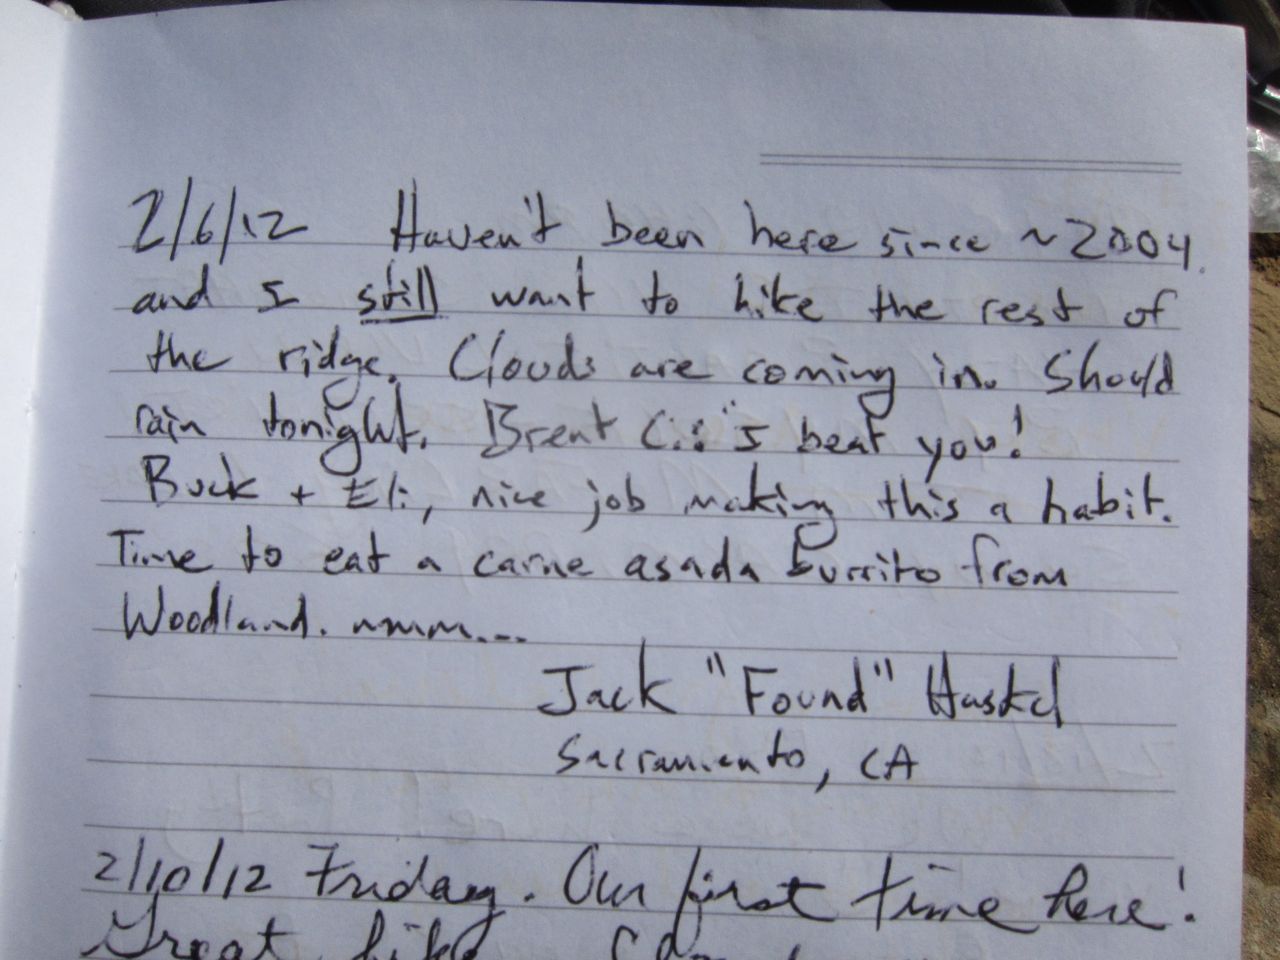 2/6/12 Haven't been here since ~2004.
and I still want to hike the rest of
the ridge. Clouds are coming in. Should
rain tonight. Brent C.: "I beat you!
Buck + Eli, nice job making this a habit.
Time to eat a carne asada burrito from
Woodland. mmm...
Jack "Found" Haskel
Sacramento, CA
2/10/12 Friday. Our first time here!
Great hike